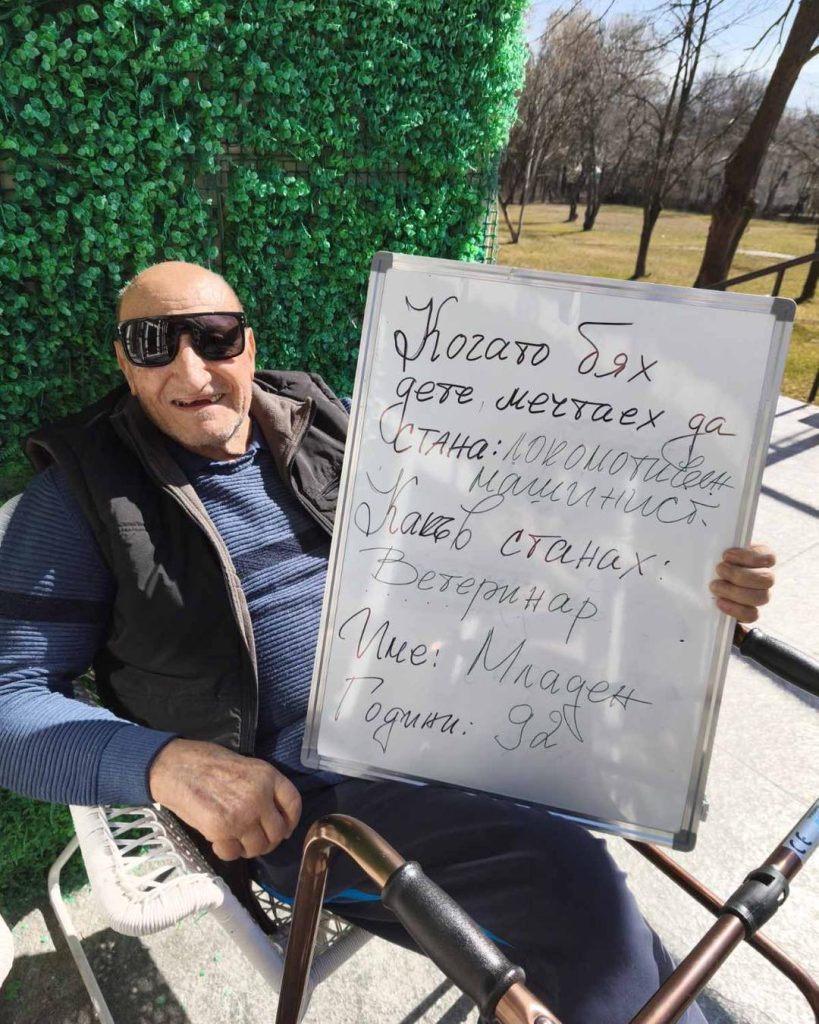 Когато бях
дете, мечтаех да
стана: локомотивен
машинист.
Какъв станах:
Ветеринар
Име: Младен
Години: 92
CE